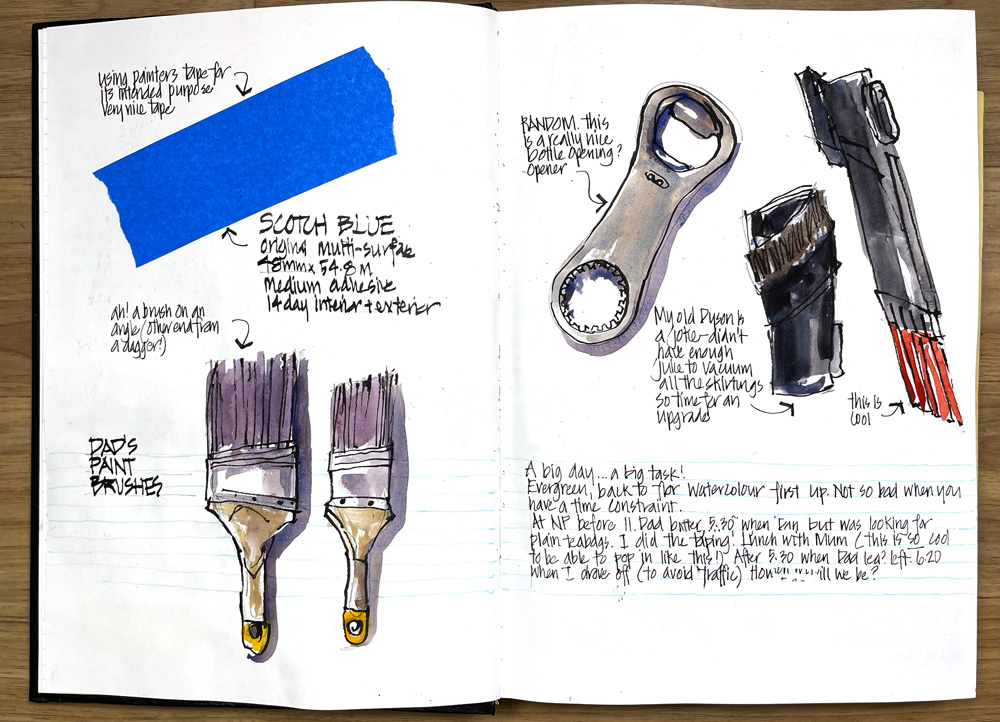 using painters tape for
its intended purpose
very nice tape
SCOTCH BLUE
original multi-surface
48mm x 54.8 M
Medium adhesive
14 day interior + exterior
ah! a brush on an
angle (other end from
a dagger!)
DAD'S
PAINT
BRUSHES
RANDOM. this
is a really nice
bottle opening?
opener
My old Dyson is
a joke - didn't
have enough
juice to vacuum
all the skirtings
so time for an
upgrade
this is
cool
A big day... a big task!
Evergreen, back to for watercolour first up. Not so bad when you
have a time constraint.
At NP before 11. Dad 5.30 when Dan but was looking for
plain teabags. I did the taping! Lunch with Mum (this is so cool
to be able to pop in like this!) After 5.30 when Dad left. 6.20
when I drove off (to avoid traffic) How will we be?